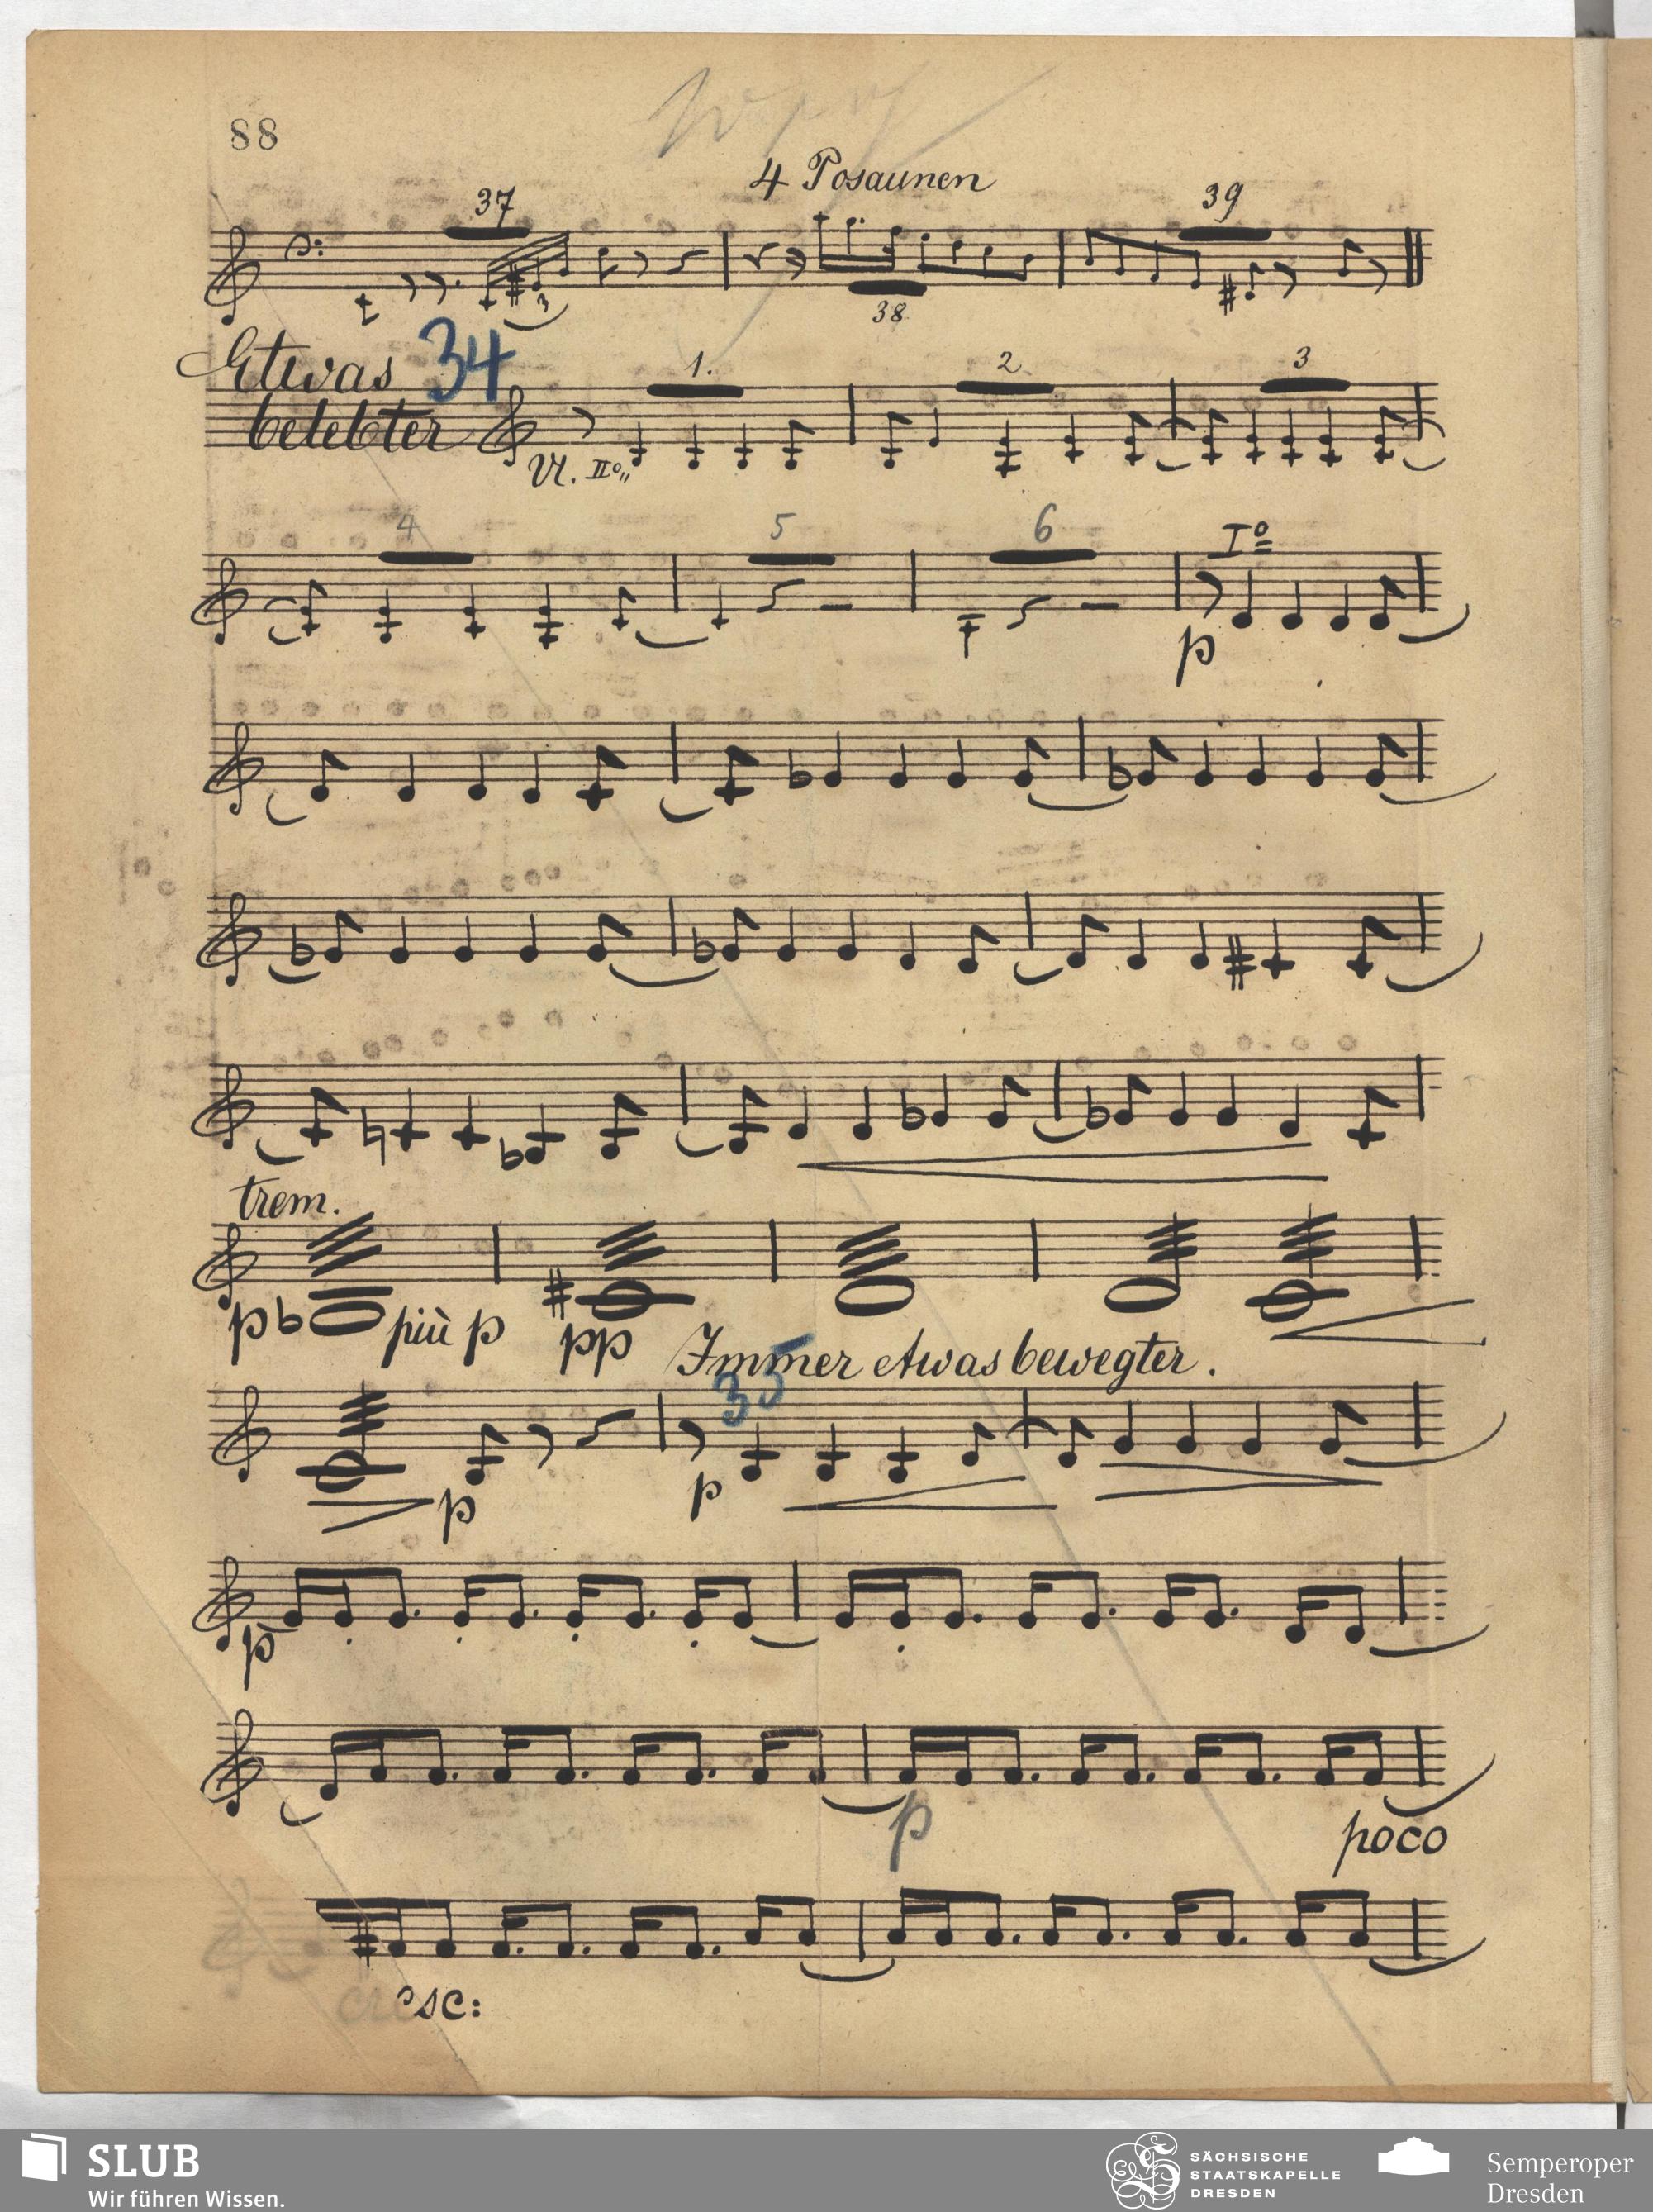 88
4 Posaunen
37
39
3
38
Etwas 34
belebter
1.
2
3
Vl. IIo
4
5
6
Io
p
trem.
p più p pp
Immer etwas bewegter.
35
p p
p
p
poco
cresc:
SLUB
Wir führen Wissen.
SÄCHSISCHE
STAATSKAPELLE
DRESDEN
Semperoper
Dresden